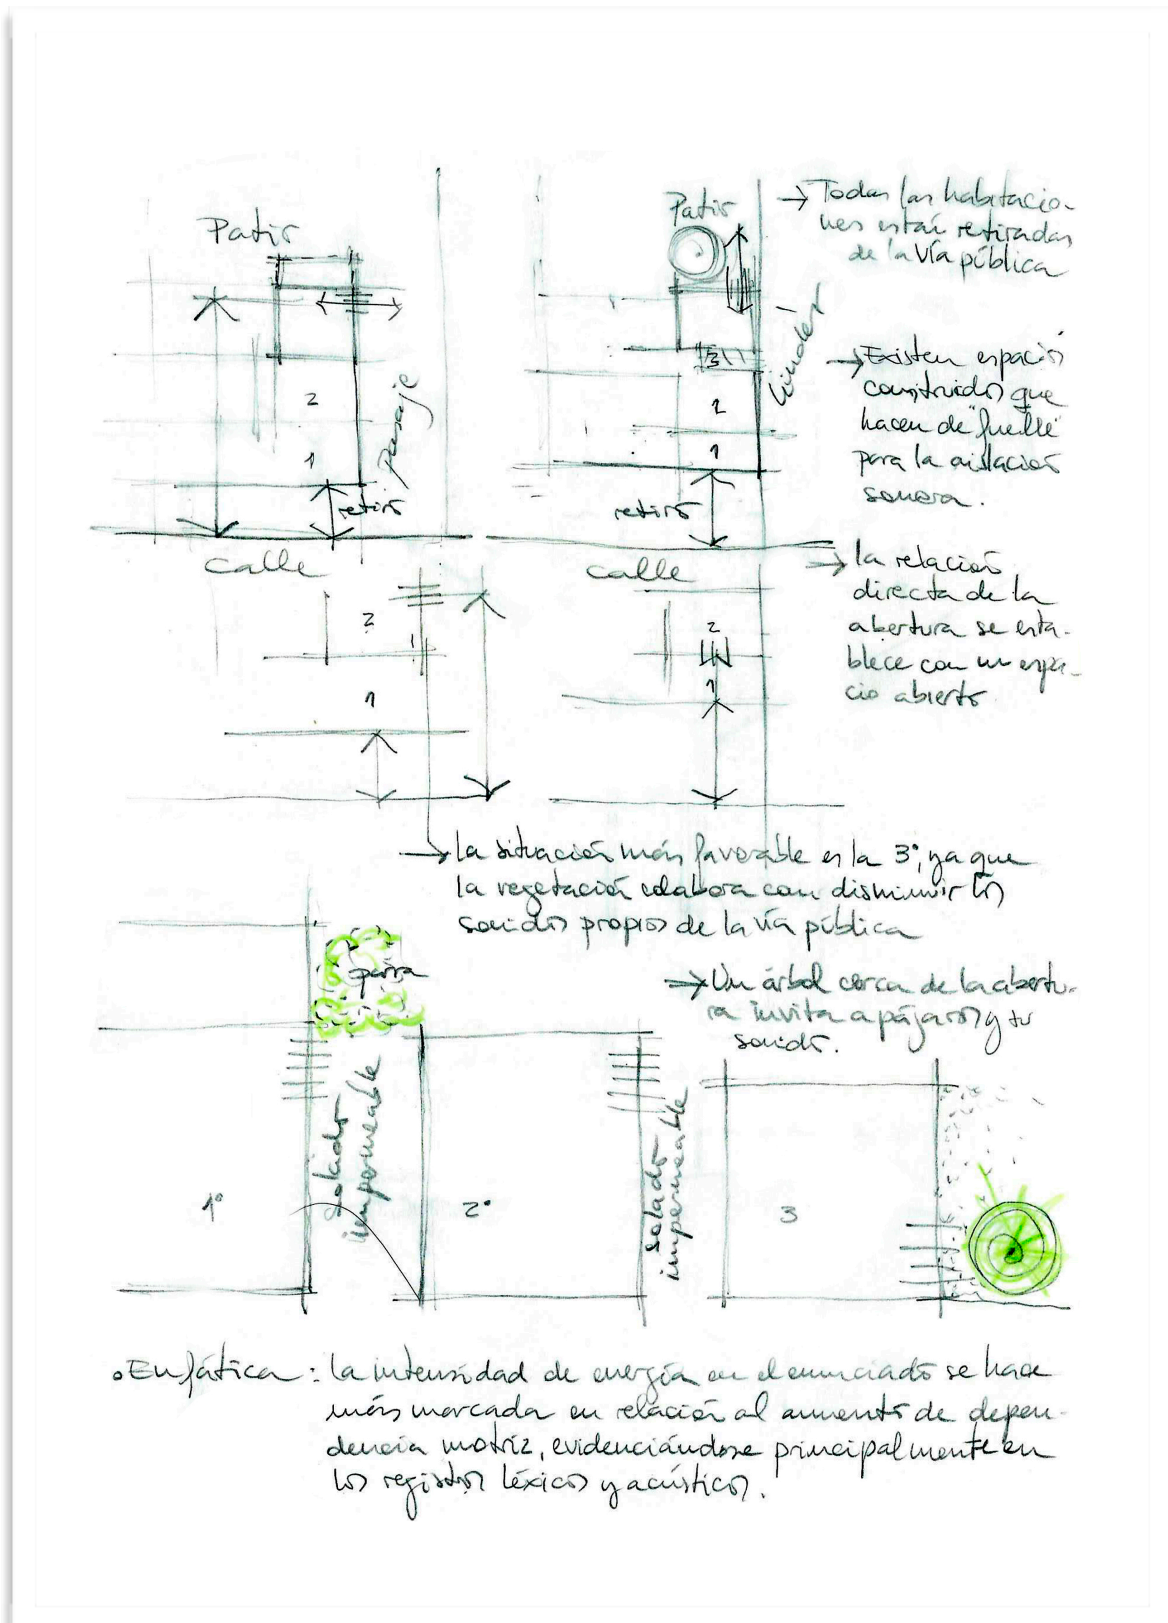 Patio
Patio
→ Todas las habitacio-
nes están retiradas
de la vía pública
→ Existen espacios
construidos que
hacen de "fuelle"
para la aislación
sonora.
2
1
Pasaje
retiro
3
2
1
linder
retiro
Calle
calle
→ la relación
directa de la
abertura se esta-
blece con un espa-
cio abierto.
2
1
2
1
→ La situación más favorable es la 3°, ya que
la vegetación colabora con disminuir los
sonidos propios de la vía pública
parra
→ Un árbol cerca de la abertu-
ra invita a pájaros y su
sonido.
solado
impermeable
solado
impermeable
1°
2°
3
• Enfática: la intensidad de energía en el enunciado se hace
más marcada en relación al aumento de depen-
dencia motriz, evidenciándose principalmente en
los registros léxicos y acústicos.